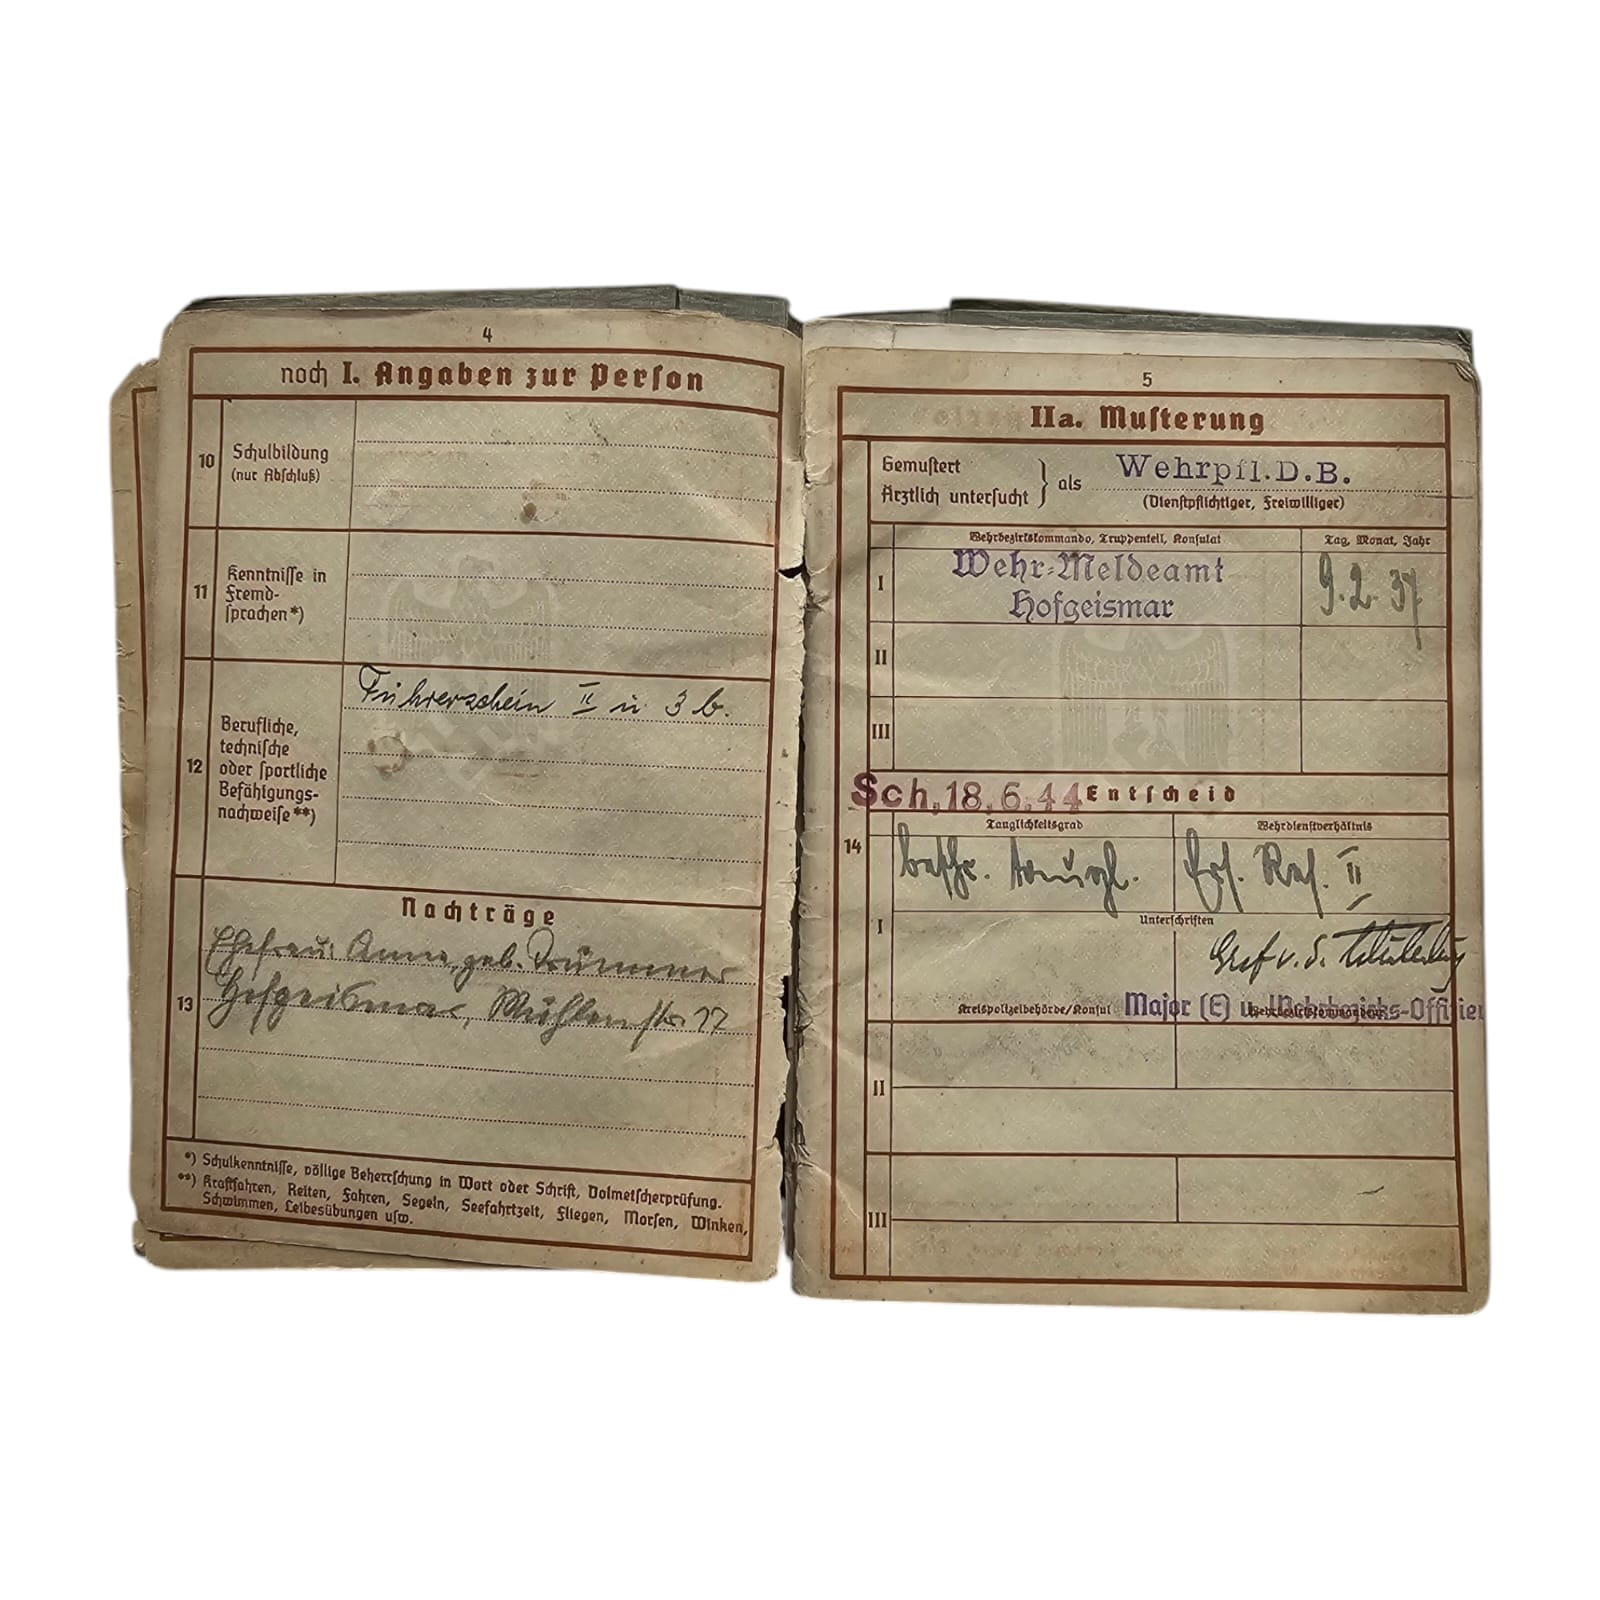 4
noch I. Angaben zur Person
10 Schulbildung
(nur Abschluß)
11 Kenntnisse in
Fremd-
sprachen*)
12 Berufliche,
technische
oder sportliche
Befähigungs-
nachweise**)
Führerschein II u 3 b.
Nachträge
13
Ehefrau: Anna, geb.
Hofgeismar, Mühlenstr.
*) Schulkenntnisse, völlige Beherrschung in Wort oder Schrift, Dolmetscherprüfung.
**) Kraftfahren, Reiten, Fahren, Segeln, Seefahrtzeit, Fliegen, Morsen, Winken,
Schwimmen, Leibesübungen usw.
5
IIa. Musterung
Gemustert
Ärztlich untersucht } als Wehrpfl.D.B.
(Dienstpflichtiger, Freiwilliger)
Wehrbezirkskommando, Truppenteil, Konsulat Tag, Monat, Jahr
I Wehr-Meldeamt
Hofgeismar
9.2.37
II
III
Sch, 18.6.44 Entscheid
Tauglichkeitsgrad Wehrdienstverhältnis
14
beschr. taugl. Ers. Res. II
I
Unterschriften
Graf v. d.
Kreispolizeibehörde/Konsul Major (E) u. Wehrbezirks-Offizier
Wehrbezirkskommandeur
II
III